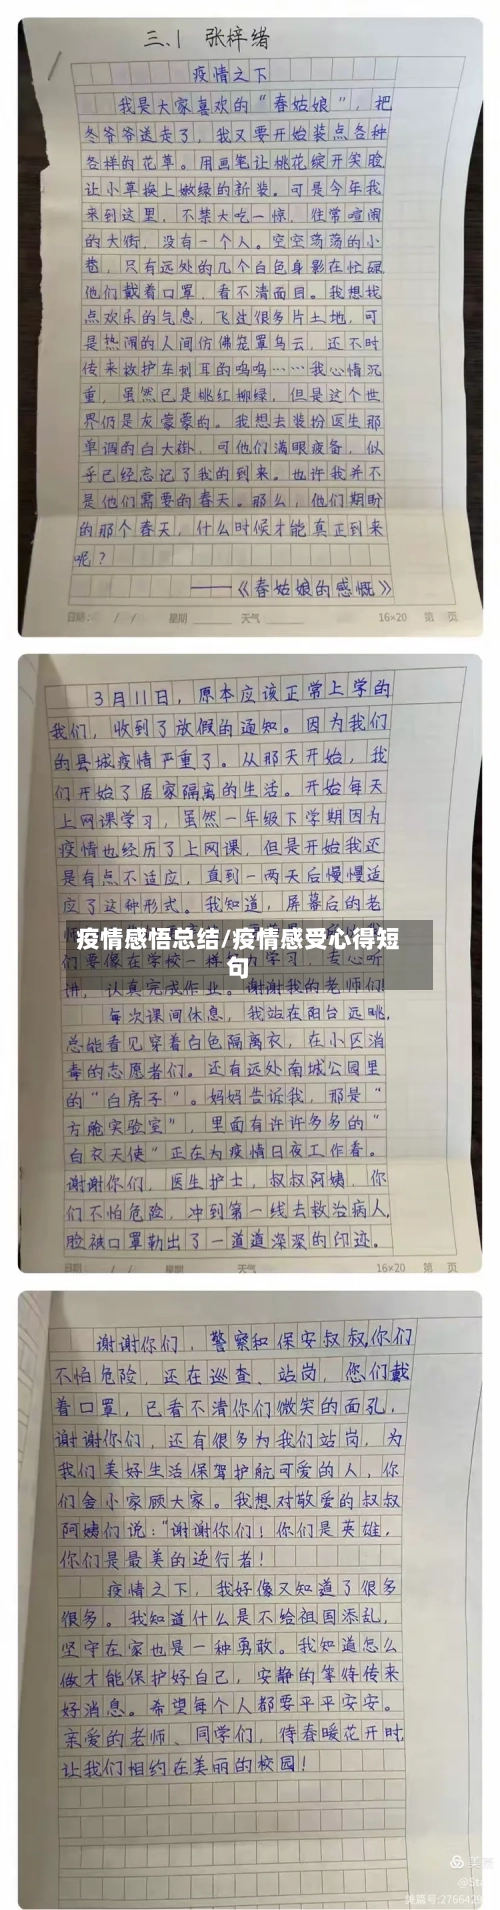 三.1 张梓绪
疫情之下
我是大家喜欢的“春姑娘”，把
冬爷爷送走了，我又要开始装点各种
各样的花草。用画笔让桃花绽开笑脸，
让小草换上嫩绿的新装。可是今年我
来到这里，不禁大吃一惊，往常喧闹
的大街，没有一个人。空空荡荡的小
巷，只有远处的几个白色身影在忙碌，
他们戴着口罩，看不清面目。我想找
点欢乐的气息，飞过很多片土地，可
是热闹的人间仿佛笼罩乌云，还不时
传来救护车刺耳的呜呜……我心情沉
重，虽然已是桃红柳绿，但是这个世
界仍是灰蒙蒙的。我想去装扮医生那
单调的白大褂，可他们满眼疲备，似
乎已经忘记了我的到来。也许我并不
是他们需要的春天。那么，他们期盼
的那个春天，什么时候才能真正到来
呢？
——《春姑娘的感慨》
日期： / / 星期 天气 16×20 第 页
3月11日，原本应该正常上学的
我们，收到了放假的通知。因为我们
的县城疫情严重了。从那天开始，我
们开始了居家隔离的生活。开始每天
上网课学习，虽然一年级下学期因为
疫情也经历了上网课，但是开始我还
是有点不适应，直到一两天后慢慢适
应了这种形式。我知道，屏幕后的老
疫情感悟总结/疫情感受心得短
句
们要像在学校一样努力学习，专心听
讲，认真完成作业。谢谢我的老师们！
每次课间休息，我站在阳台远眺，
总能看见穿着白色隔离衣，在小区消
毒的志愿者们。还有远处南城公园里
的“白房子”。妈妈告诉我，那是“
方舱实验室”，里面有许许多多的“
白衣天使”正在为疫情日夜工作着。
谢谢你们，医生护士，叔叔阿姨，你
们不怕危险，冲到第一线去救治病人，
脸被口罩勒出了一道道深深的印迹。
日期 / / 星期 天气 16×20 第 页
谢谢你们，警察和保安叔叔，你们
不怕危险，还在巡查、站岗，您们戴
着口罩，已看不清你们微笑的面孔，
谢谢你们，还有很多为我们站岗，为
我们美好生活保驾护航可爱的人，你
们舍小家顾大家。我想对敬爱的叔叔
阿姨们说：“谢谢你们！你们是英雄，
你们是最美的逆行者！
疫情之下，我好像又知道了很多
很多。我知道什么是不给祖国添乱，
坚守在家也是一种勇敢。我知道怎么
做才能保护好自己，安静的等待传来
好消息。希望每个人都要平平安安。
亲爱的老师、同学们，待春暖花开时，
让我们相约在美丽的校园！